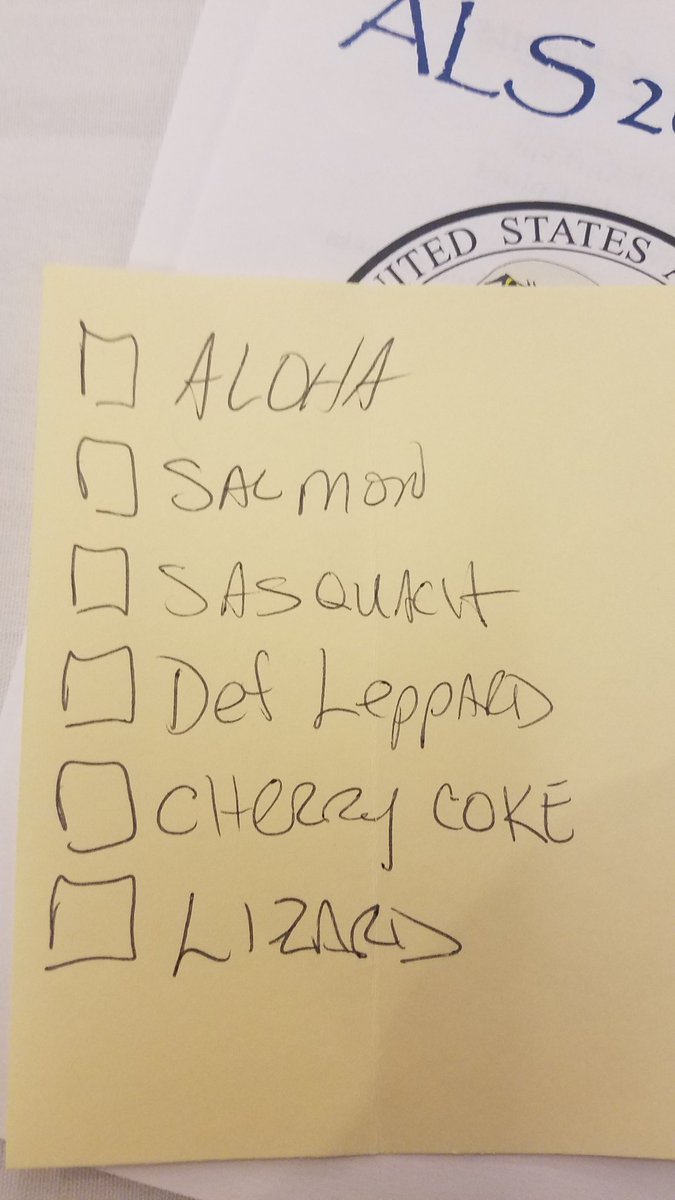 ALS 20
UNITED STATES A
ALOHA
SALMON
SASQUACH
Def Leppard
CHERRY COKE
LIZARD